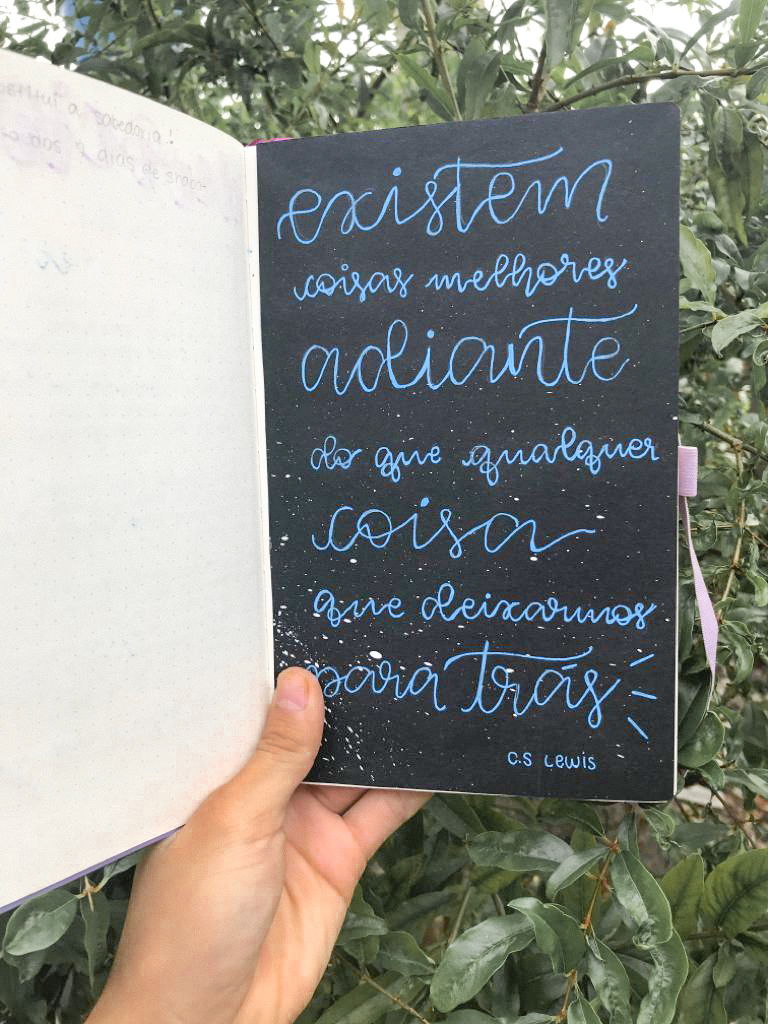 a sabedoria!
dias de
existem
coisas melhores
adiante
do que qualquer
coisa
que deixarmos
para trás
C.S Lewis